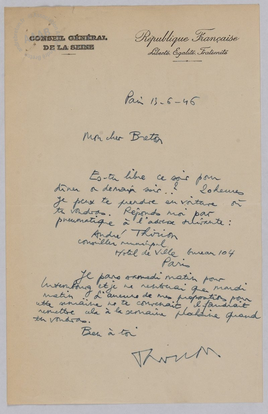 CONSEIL GÉNÉRAL
DE LA SEINE
République Française
Liberté, Égalité, Fraternité
Paris 13-6-46
Mon cher Breton
Es-tu libre ce soir pour
dîner ou demain soir..? 20 heures
je peux te prendre en voiture où
tu voudras. Réponds moi par
pneumatique à l'adresse suivante:
André Thirion
conseiller municipal
Hotel de Ville bureau 104
Paris
Je pars samedi matin pour
Luxembourg et je ne rentrerai que mardi
matin. Si aucune de mes propositions pour
cette semaine ne te convenait il faudrait
remettre cela à la semaine prochaine quand
tu voudras.
Bien à toi
Thirion